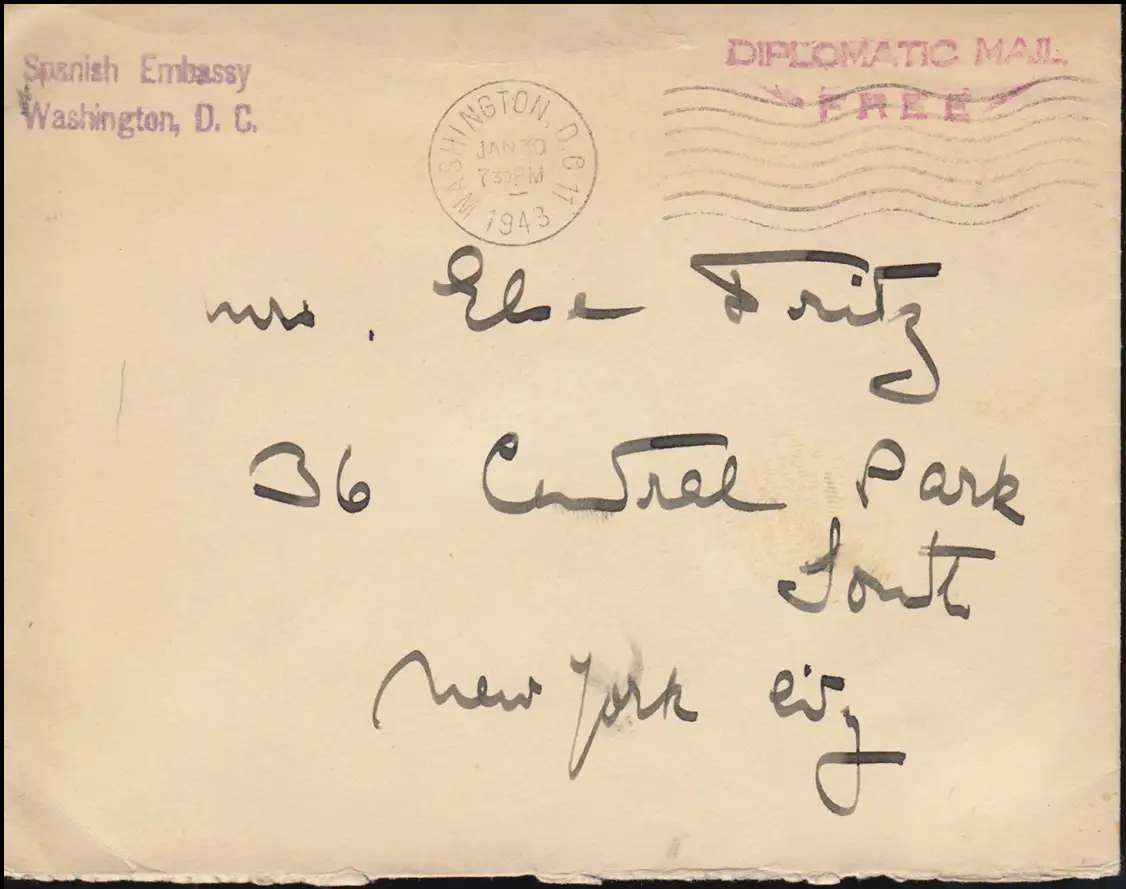 Spanish Embassy
Washington, D. C.
DIPLOMATIC MAIL
FREE
WASHINGTON, D.C. 11
JAN 30
7 30 PM
1943
Mrs. Else Fritz
36 Central Park
South
New York City